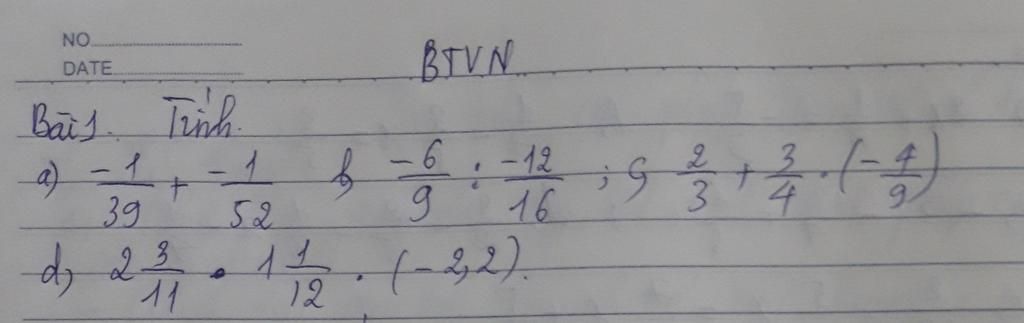 NO
DATE
BTVN
Bài 1. Tính.
a) -1/39 + -1/52 b, -6/9 : -12/16 ; c, 2/3 + 3/4 . (-4/9)
d, 2 3/11 . 1 1/12 . (-2,2).